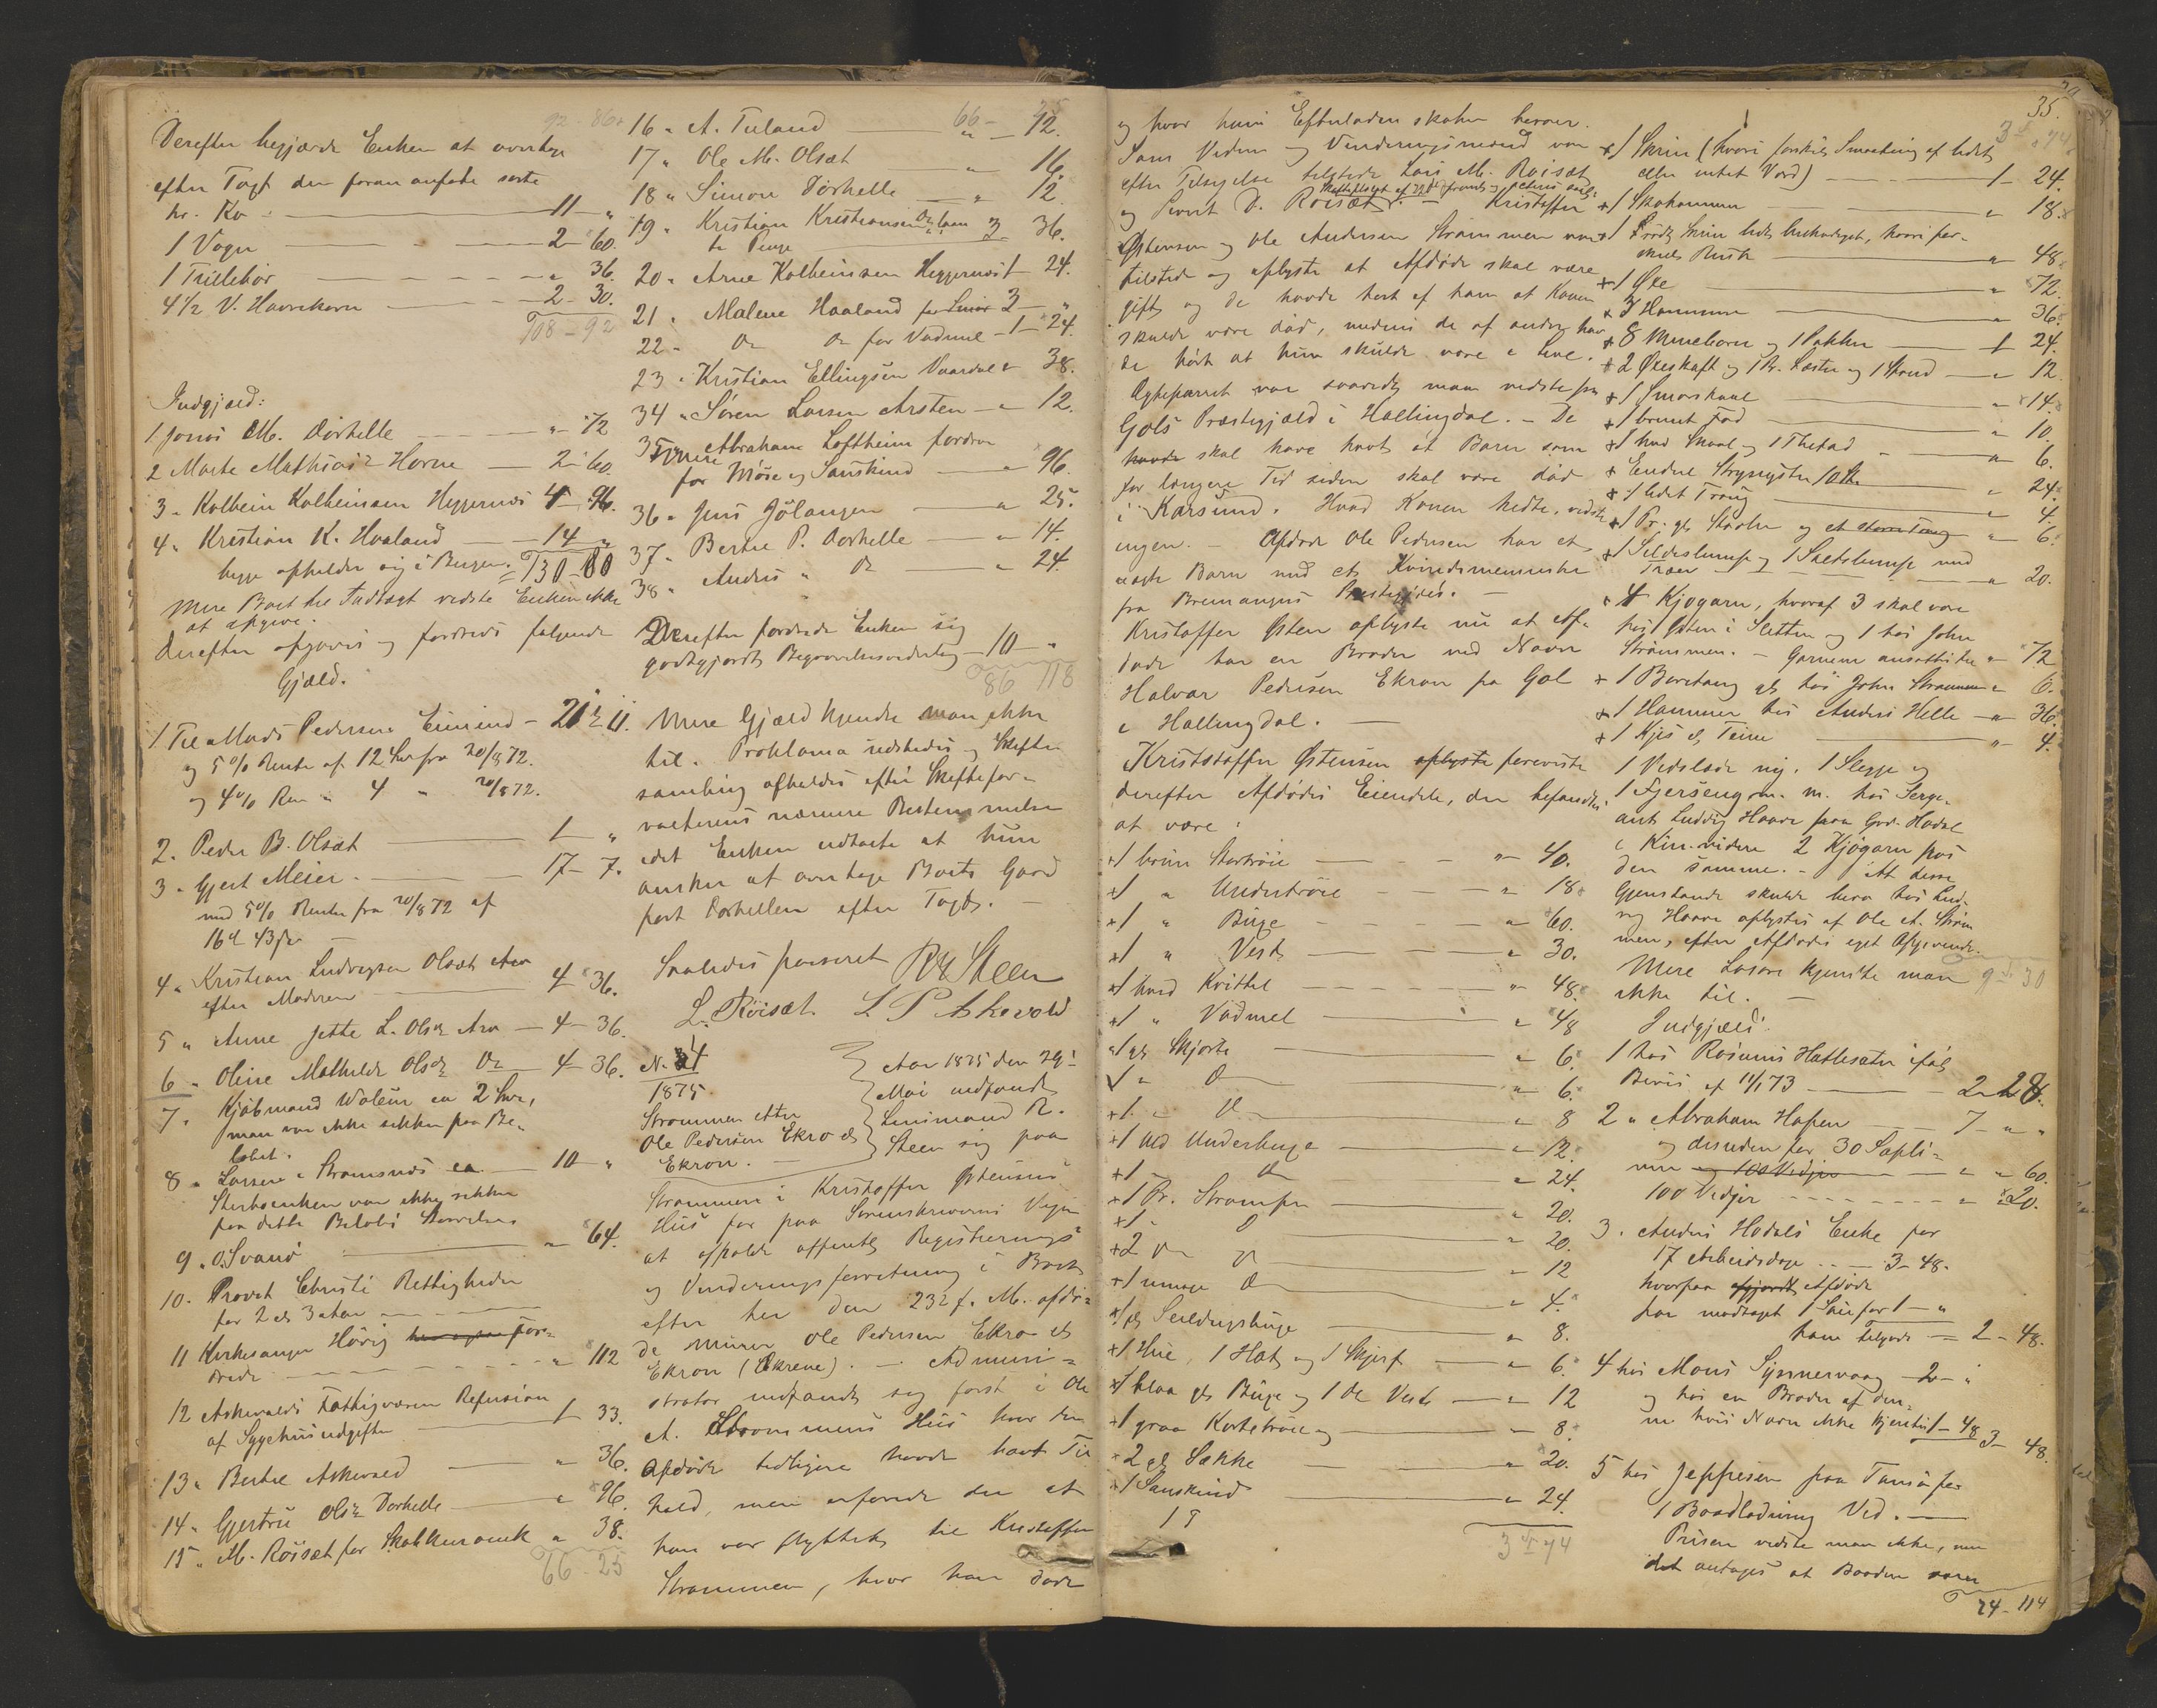 Derefter begjærde Enken at overtage
efter Taxt den foran anførte sorte
kr. Ko - 11 - "
1 Vogn - 2 - 60.
1 Trillebør - " 36.
4 1/2 V. Havrekorn - 2 - 30.
108 - 92
Indgjæld:
1. Jonas M. Dorhelle - " 72
2 Marte Mathiasd. Horne - 2 - 60.
3 " Kolbein Kolbeinsen Heggernæs 4 - 96.
4 " Kristian K. Haaland - 14 "
begge opholder sig i Bergen. 130 - 80
Mere Boet til Indtægt vidste Enken ikke
at opgive.
Derefter opgaves og fordredes følgende
Gjæld.
1 Til Mads Pedersen Eimind - 21 " 11.
og 5 % Rente af 12 fra 20/8 72.
og 4 % Ren " 4 " 20/8 72.
2. Peder B. Olsæt - 1 "
3 " Gjert Meier - 17 - 7.
med 5 % Rente fra 20/8 72 af
16 43
4 " Kristian Ludvigsen Olsæt Arv
efter Moderen - 4 - 36.
5 " Anne Jette L. Olsd. Arv - 4 - 36.
6 " Oline Mathilde Olsd. Do - 4 - 36.
7 " Kjøbmand ca 2
man var ikke sikker paa Be-
løbet.
8 " Larsen i Stromsnæs ca - 10 - "
Sterboenken var ikke sikker
paa dette Beløbs Størrelse
9 " O. Svanø - " 64.
10 " Provst Christi Rettigheder
for 2 a 3 Aar
11 Kirkesanger Hørig
- " 112
12 Askevolds Fattigvæsen Refusion
af Sygehusudgifter - 1 - 33.
13 " Bertel Askevold - " 36.
14 " Gjertru Olsd. Dorhelle - " 96.
15 " M. Röisæt for " 38.
66 - 25
66 - 25
16 " A. Tuland - " - 12.
17 " Ole M. Olsæt - " 16.
18 " Simon Dorhelle - " 12
19 " Kristian Kristiansen laan
te Penge - 3 36.
20 " Arne Kolbeinsen Heggernæs 1 - 24.
21 " Malene Haaland for Smør 3 - "
22 " Do Do for Vadmel - 1 - 24.
23 " Kristian Ellingsen Vaardal " 38.
34 " Søren Larsen Arsten - " 12.
35 Abraham Loftheim fordrer
for Møie og Sauskind - " 96.
36 " Jens Gjølanger - " 25.
37 " Bertel P. Dorhelle - " 14.
38 " Anders " Do - " 24
Derefter fordrede Enken sig
godtgjordt Begravelsesvederlag - 10 - "
86 118
Mere Gjæld kjendte man ikke
til. Proklama udstedes og Skifte
samling afholdes efter Skiftefor-
valterens nærmere Bestemmelse
idet Enken udtalte at hun
ønsker at overtage Boets Gaard
part Dorhellen efter Taxt.
Saaledes passeret R Steen
L. Röisæt. L P Askevold
N. 34
1875
Strømmen efter
Ole Pedersen Ekro el
Ekron.
Aar 1875 den 29de
Mai indfandt
Lensmand R.
Steen sig paa
Strømmen i Kristoffer Østensens
Hus for paa Sorenskriverens Vegne
at afholde offentlig Registrerings
og Vurderingsforretning i Boet
efter her den 23de f. M. afdø-
de Murer Ole Pedersen Ekro el
Ekron (Ekrene). - Admini-
strator indfandt sig først i Ole
A. Strømmens Hus hvor den
Afdøde tidligere havde havt Til
hold, men erfarede der at
han var flyttet til Kristoffer
Strømmen, hvor han døde
35.
og hvor hans Efterladenskaber beroer.
Som Vidner og Vurderingsmænd var
efter Tilsigelse tilstede Lars M. Roisæt
og Sivert D. Roisæt. - Kristoffer
Østensen og Ole Andersen Strømmen var
tilstede og oplyste at Afdøde skal være
gift og de havde hørt af ham at Konen
skulde være død, medens de af andre hav
de hørt at hun skulde være i Live.
Ægteparret var saavidt man vidste fra
Gols Præstegjæld i Hallingdal. - De
havde skal have havt et Barn som
for længere Tid siden skal være død
i Karsund. Hvad Konen hedte, vidste
ingen. - Afdøde Ole Pedersen har et
uægte Barn med et Kvindemenneske
fra Bremangers Præstegjæld.
Kristoffer Østen oplyste nu at Af-
døde har en Broder ved Navn
Halvor Pedersen Ekron fra Gol
i Hallingdal.
Kristoffer Østensen oplyste foreviste
derefter Afdødes Eiendele, der befandtes
at være:
+ 1 brun Stortrøie - " 40.
+ 1 " Undertrøie - " 18.
+ 1 " Buxe - " 60.
+ 1 " Vest - " 30.
+ 1 hvid Kvittel - " 48.
+ 1 " Vadmel - " 48
+ 1 gl. Skjorte - " 6.
1 " Do - " 6.
+ 1 " Do - " 8
+ 1 uld Underbuxe - " 12.
+ 1 " Do - " 24.
+ 1 Pr. Strømper - " 20.
+ 1 " D - " 20.
+ 2 Do - " 12
+ 1 umage Do - " 4.
+ 1 gl. Seildugsbuxe - " 8.
+ 1 Hue, 1 Hat og 1 Skjerf - " 6.
+ 1 blaa gl. Buxe og 1 do Vest - " 12
+ 1 graa Kortetrøie og - " 8.
+ 2 gl Sække - " 20.
+ 1 Sauskind - " 24.
19 3 " 74
3 " 74
+ 1 Skrin (hvori forskjel. Smaating af lidet
eller intet Værd) - 1 - 24.
+ 1 Skohammer - " 18.
+ 1 rødt Skrin lidt beskadiget, hvori for-
skjel. Rusk - " 48.
+ 1 Øxe - " 72.
+ 3 Hammere - " 36.
+ 8 Mineborer og 1 Pakker - 1 24.
+ 2 Øxeskaft og 1 Pr. Læster og 1 Spand - " 12.
+ 1 Smørskaal - " 14.
+ 1 brunt Fad - " 10.
+ 1 hvid Skaal og 1 Thefad - " 6.
+ Endeel - " 24.
+ 1 lidet Traug - " 4.
+ 1 Pr. gl. Støvler og et - " 6.
+ 1 Sildeslump og 1 Sætslump med
Træer - " 20.
+ 4 Kjøgarn, hvoraf 3 skal være
hos Østen i Sletten og 1 hos John
Strømmen. - Garnene ansattes til " 72
+ 1 Boretang gl. hos John Strømmen " 6.
+ 1 Hammer hos Anders Helle - " 36.
+ 1 Kjes el. Teine - " 4.
1 Vedslæde ny. 1 Slegge og
1 Fjerseng m. m. hos Serge-
ant Ludvig Haave paa Grd. Hodal
i Kin. videre 2 Kjøgarn hos
den samme. - At disse
Gjenstande skulde bero hos Lud-
vig Haave oplystes af Ole A. Strøm
men, efter Afdødes eget Opgivende.
Mere Løsøre kjendte man 9 " 30
ikke til.
Indgjæld:
1 hos Rasmus Hatlesæter ifølg
Bevis af 11/1 73 - 2 - 28.
2 " Abraham Hafen - 7 - " "
og desuden for 30 Sopli-
mer og 100 Vidjer - " " 60.
100 Vidjer - " " 20.
3. Anders Hodals Enke for
17 Arbeidsdage - 3 - 48.
hvorpaa afgjordt Afdøde
har modtaget 1 Sau for 1 - "
ham tilgode = 2 - 48.
4 hos Mons - 2 - "
og hos en Broder af den-
ne hvis Navn ikke kjendtes 1 - 48 3 - 48.
5 hos Jeppesen paa Tansø for
1 Baadladning Ved.
Prisen vidste man ikke, men
det antages at Baaden
24 - 114